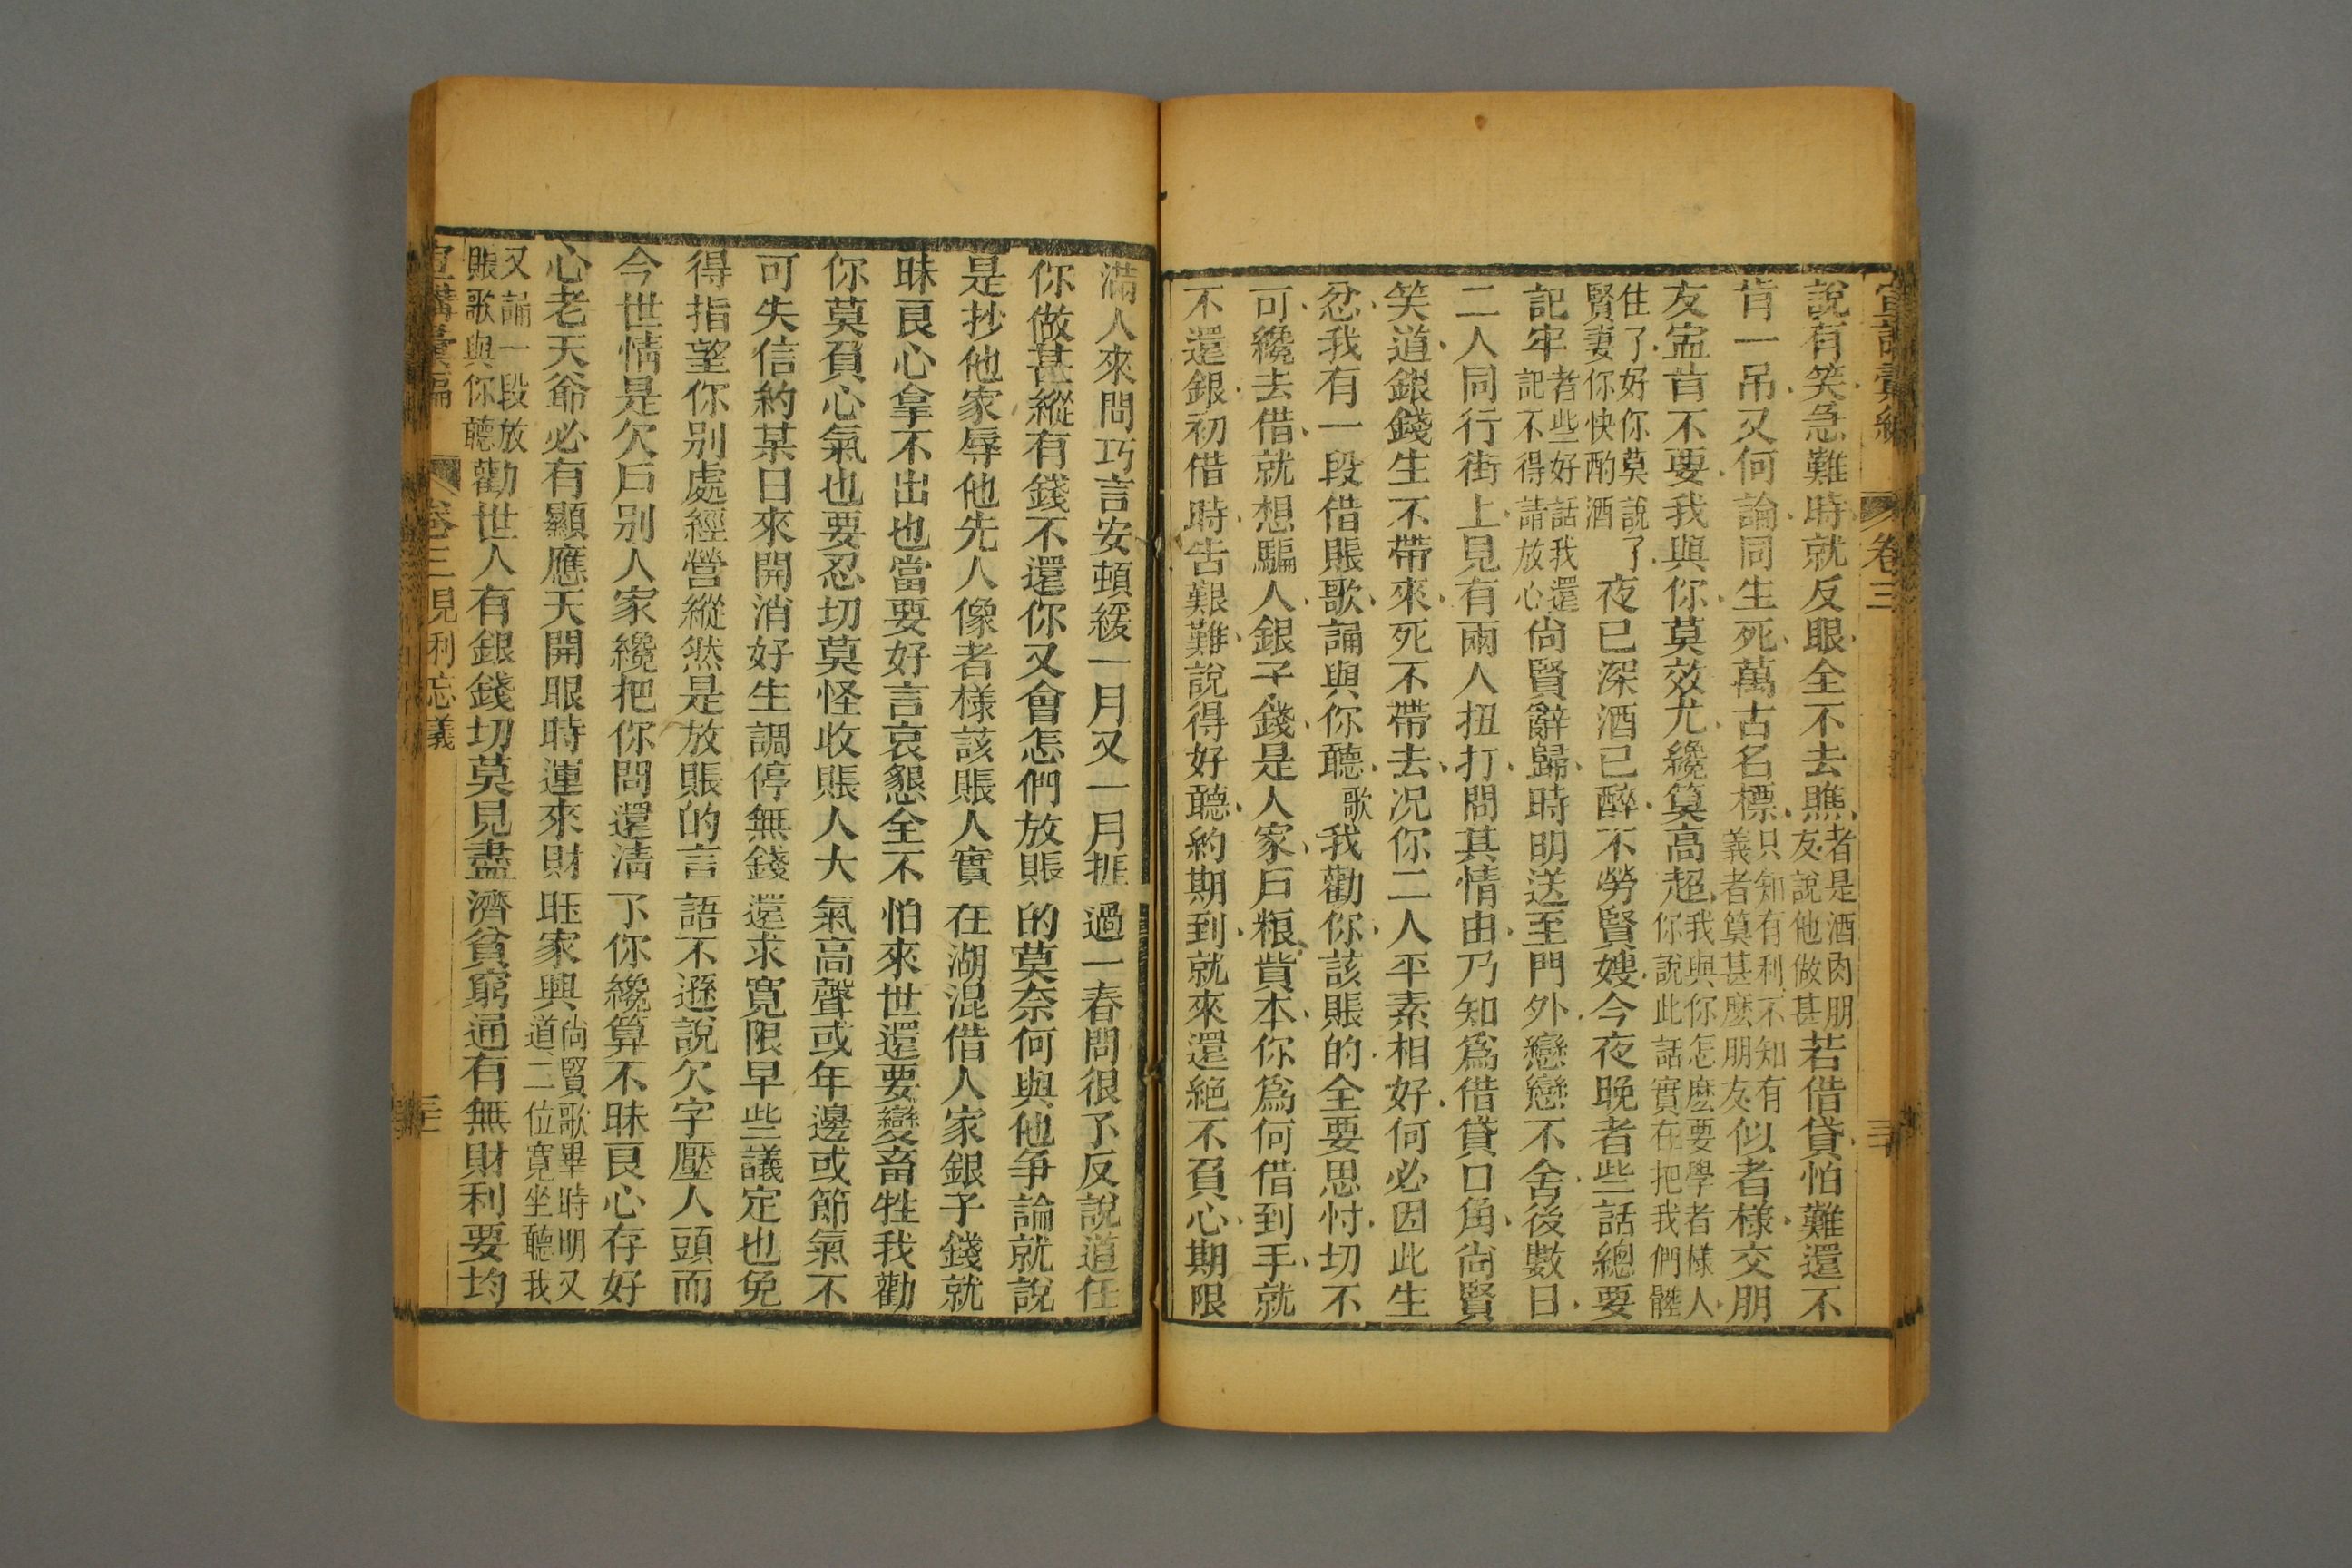 說有笑急難時就反眼全不去瞧者是酒肉朋友說他做甚若借貸怕難還不
肯一吊又何論同生死萬古名標只知有利不知有義者算甚麽朋友似者樣交朋
友寔首不要我與你莫效尤纔算高超我與你怎麽要學者樣人你說此話實在把我們髒
住了好你莫說了賢妻你快酌酒夜已深酒已醉不勞賢嫂今夜晚者些話總要
記牢者些好話我還記不得請放心尙賢辭歸時明送至門外戀戀不舍後數日
二人同行街上見有兩人扭打問其情由乃知爲借貸口角尙賢
笑道銀錢生不帶來死不帶去况你二人平素相好何必因此生
忿我有一段借賬歌誦與你聽歌我勸你該賬的全要思忖切不
可纔去借就想騙人銀子錢是人家戶粮貲本你爲何借到手就
不還銀初借時吿艱難說得好聽約期到就來還絕不負心期限
宣講彙編 卷三 三十
滿人來問巧言安頓緩一月又一月捱過一春問很了反說道任
你做甚縱有錢不還你又會怎們放賬的莫奈何與他爭論就說
是抄他家辱他先人像者樣該賬人實在湖混借人家銀子錢就
昧良心拿不出也當要好言哀懇全不怕來世還要變畜牲我勸
你莫負心氣也要忍切莫怪收賬人大氣高聲或年邊或節氣不
可失信約某日來開消好生調停無錢還求寬限早些議定也免
得指望你别處經營縱然是放賬的言語不遜說欠字壓人頭而
今世情是欠戶别人家纔把你問還淸了你纔算不昧良心存好
心老天爺必有顯應天開眼時運來財旺家興尙賢歌畢時明又道二位寬坐聽我
又誦一段放賬歌與你聽勸世人有銀錢切莫見盡濟貧窮通有無財利要均
宣講彙編 卷三 見利忘義 三十一